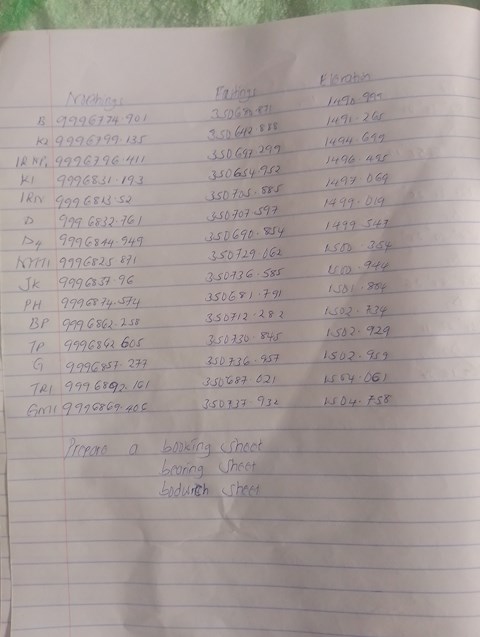 Northings Eastings Elevation
B 9996774.901 350684.871 1490.999
K2 9996799.135 350647.888 1491.265
IRKP1 9996796.411 350697.299 1494.699
K1 9996831.193 350654.952 1496.495
IRIV 9996813.52 350725.885 1497.069
D 9996832.761 350707.597 1499.019
D4 9996844.949 350690.854 1499.543
NYM1 9996825.871 350729.062 1500.354
JK 9996857.96 350736.585 1500.944
PH 9996874.574 350681.791
BP 9996862.258 350712.282 1502.734
TP 9996842.605 350730.845 1502.929
G 9996857.277 350736.957 1502.959
TR1 9996892.161 350687.021 1504.061
9996869.406 350737.932 1504.758
Prepare a booking sheet
bearing sheet
sheet